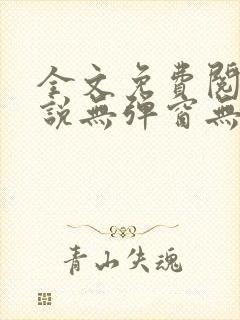 全文免費閱
說無彈窗無
青山失魂